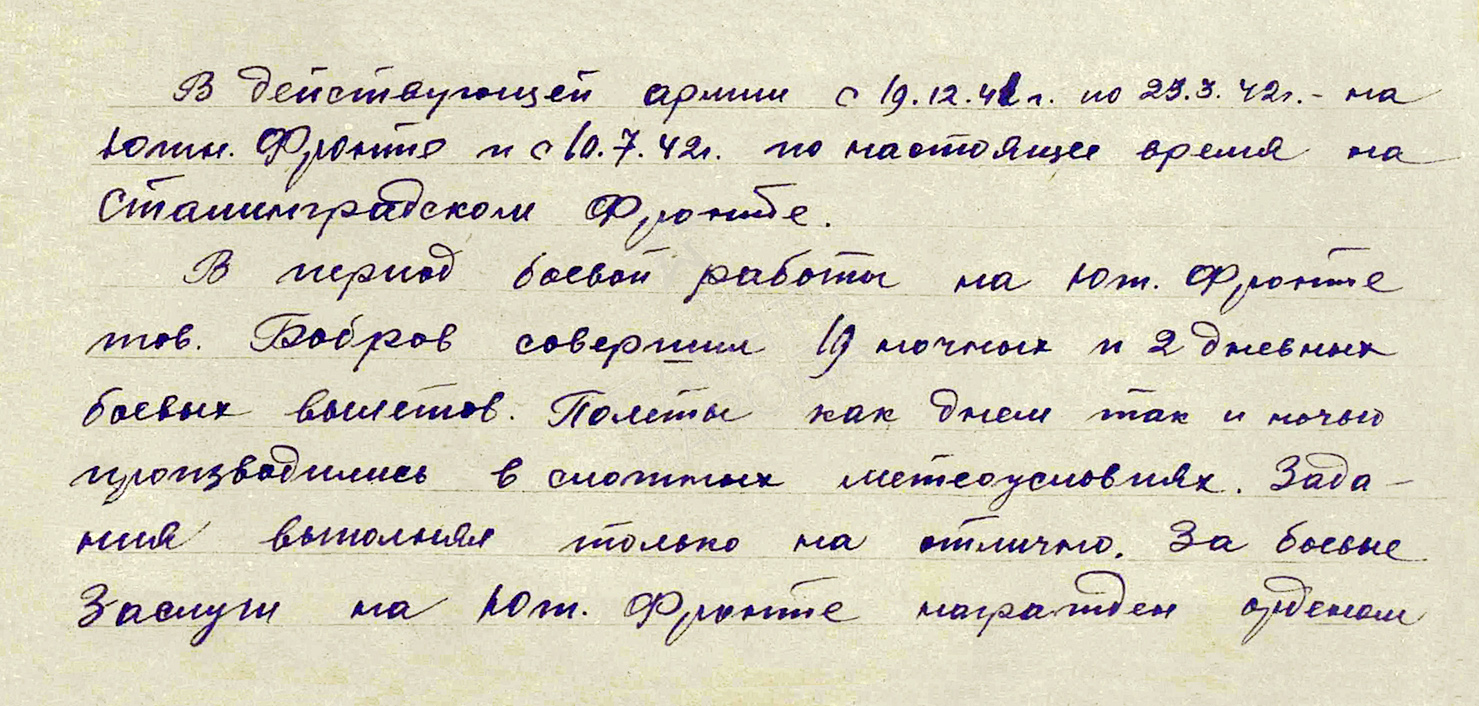 В действующей армии с 19.12.41 г. по 23.3.42г. - на
Южн. Фронте и с 10.7.42г. по настоящее время на
Сталинградском Фронте.
В период боевой работы на Юж. Фронте
тов. Бобров совершил 19 ночных и 2 дневных
боевых вылетов. Полеты как днем так и ночью
производились в сложных метеоусловиях. Зада-
ния выполнял только на отлично. За боевые
Заслуги на Юж. Фронте награжден орденом